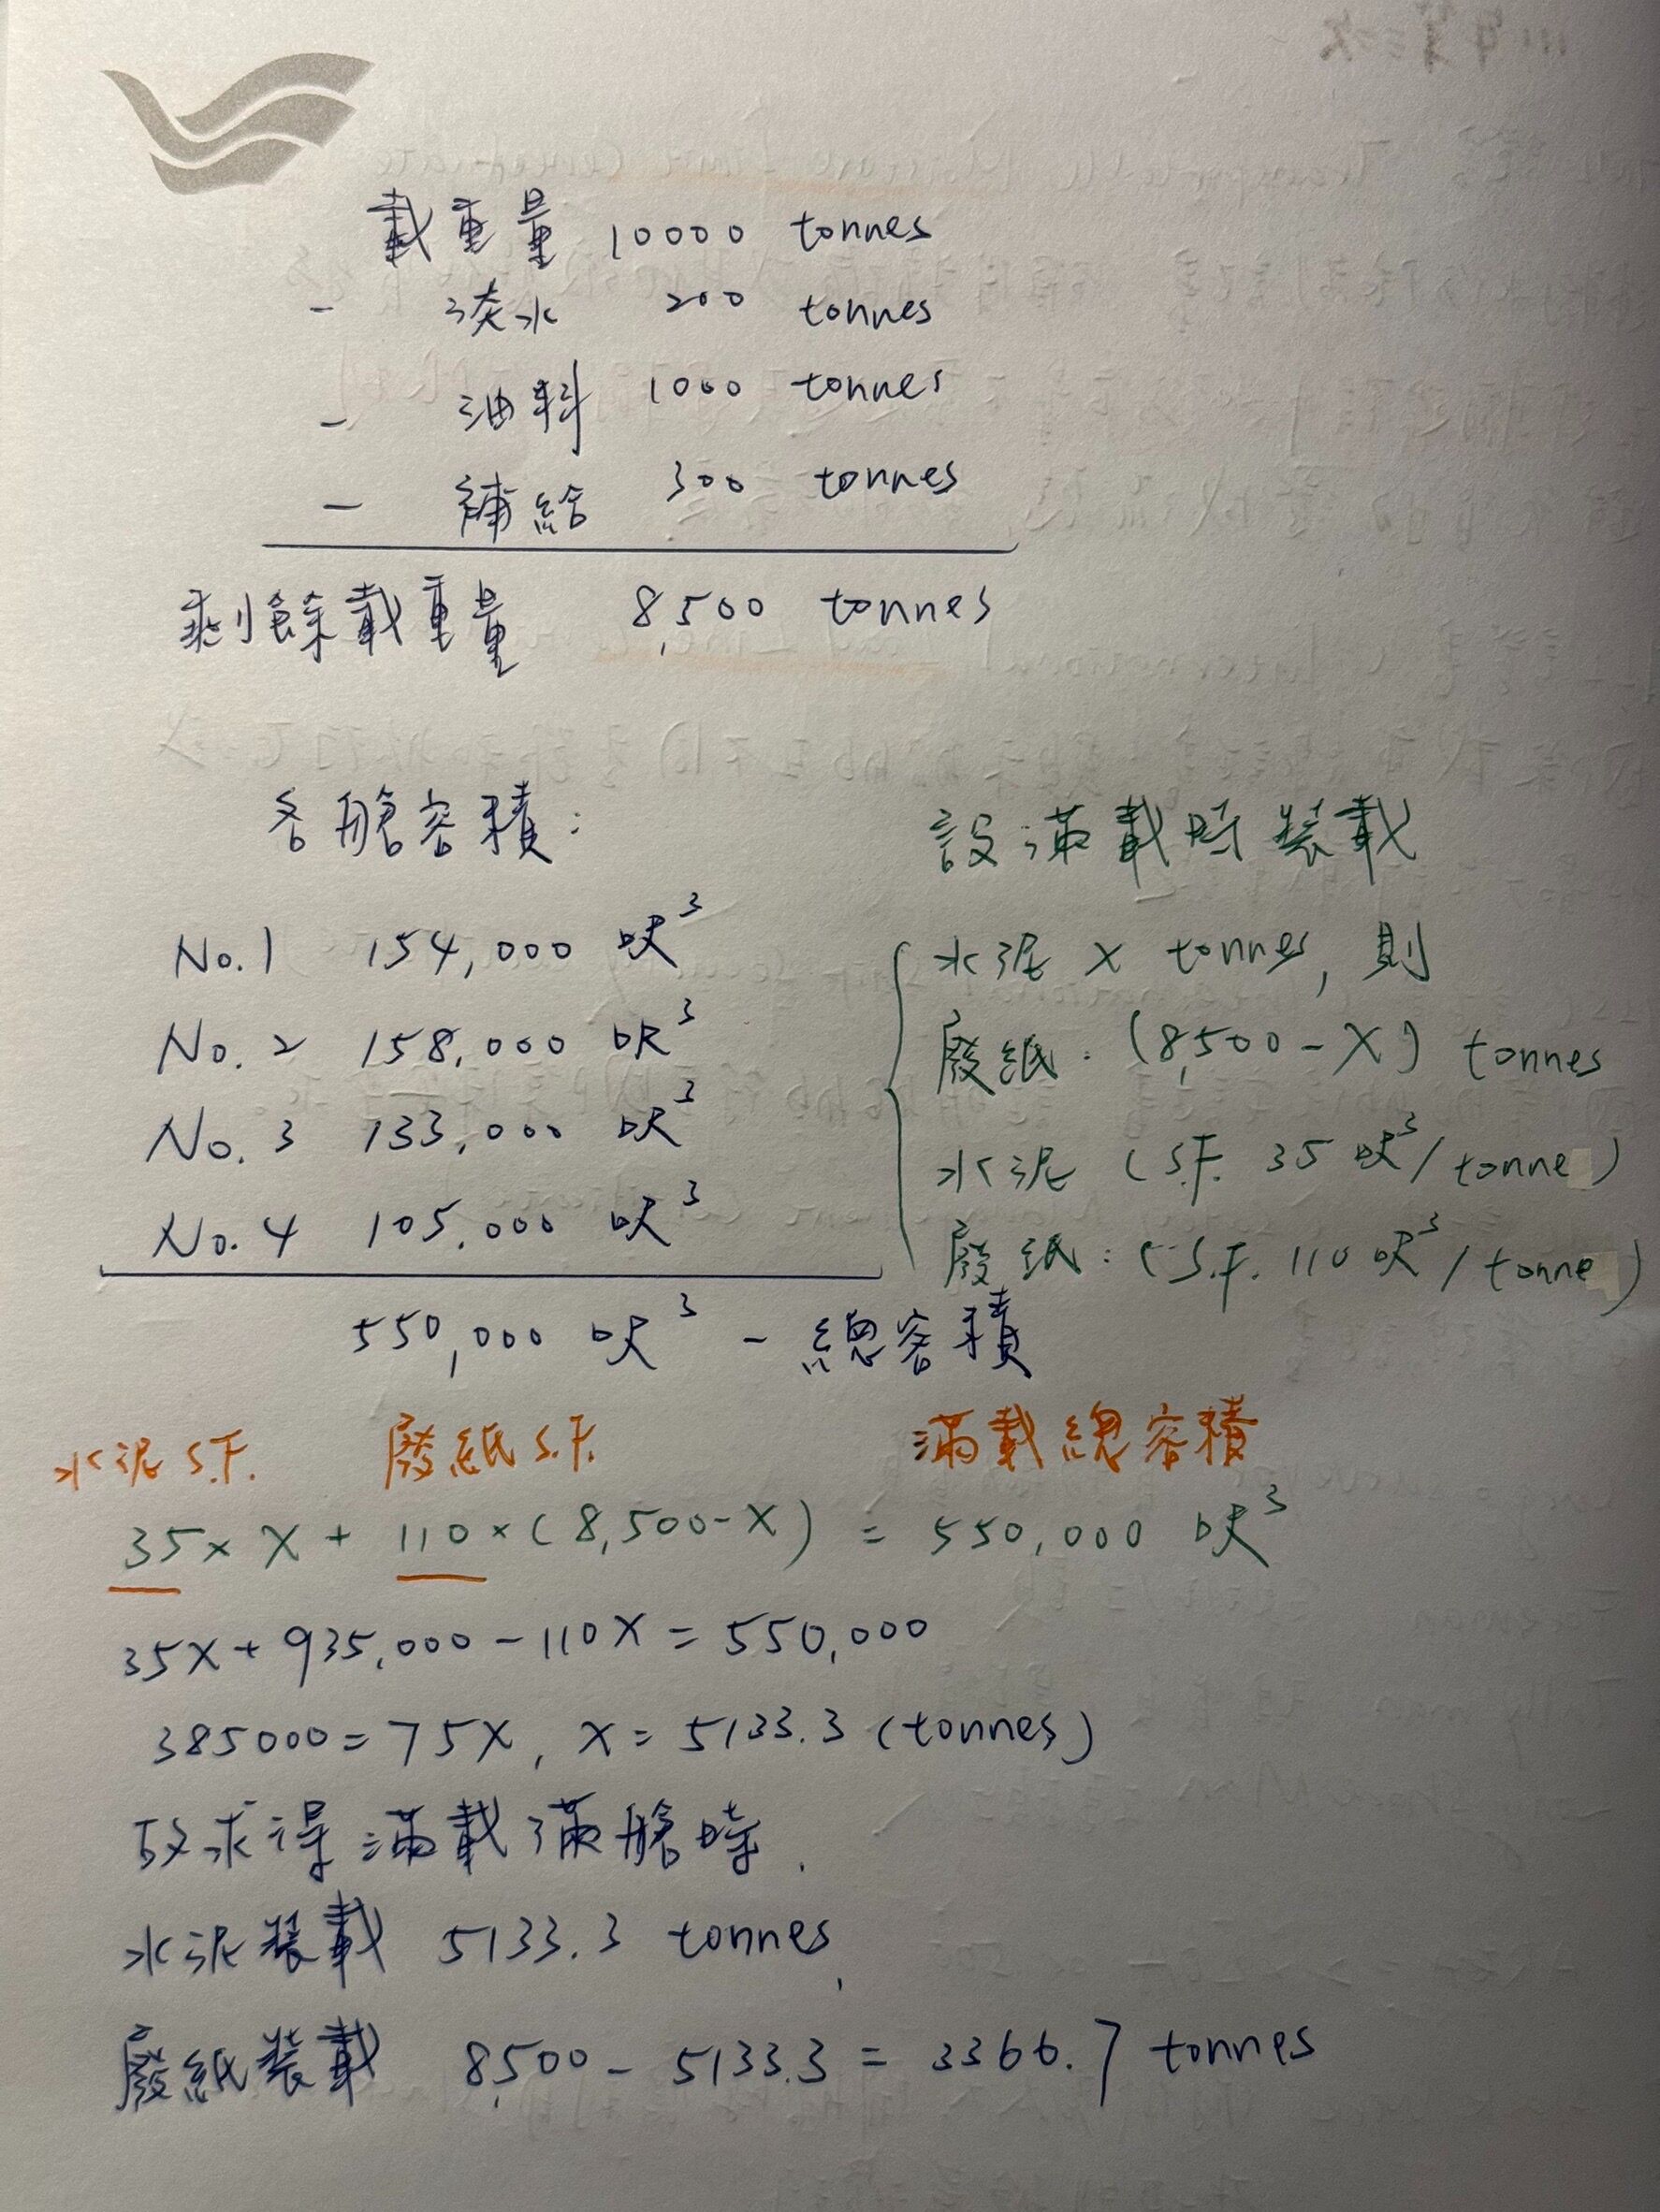 載重量 10000 tonnes
- 淡水 200 tonnes
- 油料 1000 tonnes
- 補給 300 tonnes
剩餘載重量 8,500 tonnes
各艙容積:
No.1 154,000 呎³
No. 2 158,000 呎³
No. 3 133,000 呎³
No. 4 105,000 呎³
550,000 呎³ - 總容積
設滿載時裝載
水泥 X tonnes, 則
廢紙: (8,500-X) tonnes
水泥 (S.F. 35 呎³/tonne)
廢紙: (S.F. 110 呎³/tonne)
水泥 S.F. 廢紙 S.F. 滿載總容積
35 × X + 110 × (8,500-X) = 550,000 呎³
35X + 935,000 - 110X = 550,000
385000 = 75X, X = 5133.3 (tonnes)
故求得滿載滿艙時,
水泥裝載 5133.3 tonnes,
廢紙裝載 8,500 - 5133.3 = 3366.7 tonnes